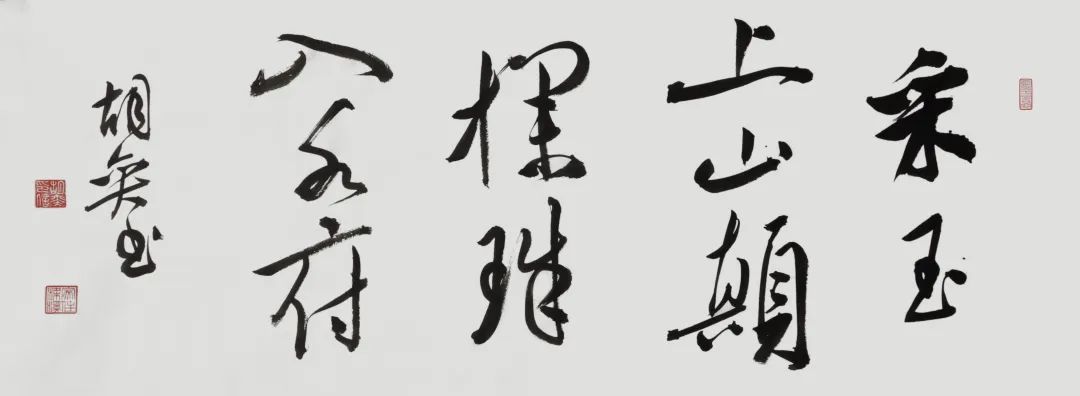 采玉
上山顛
探珠
入水府
胡书